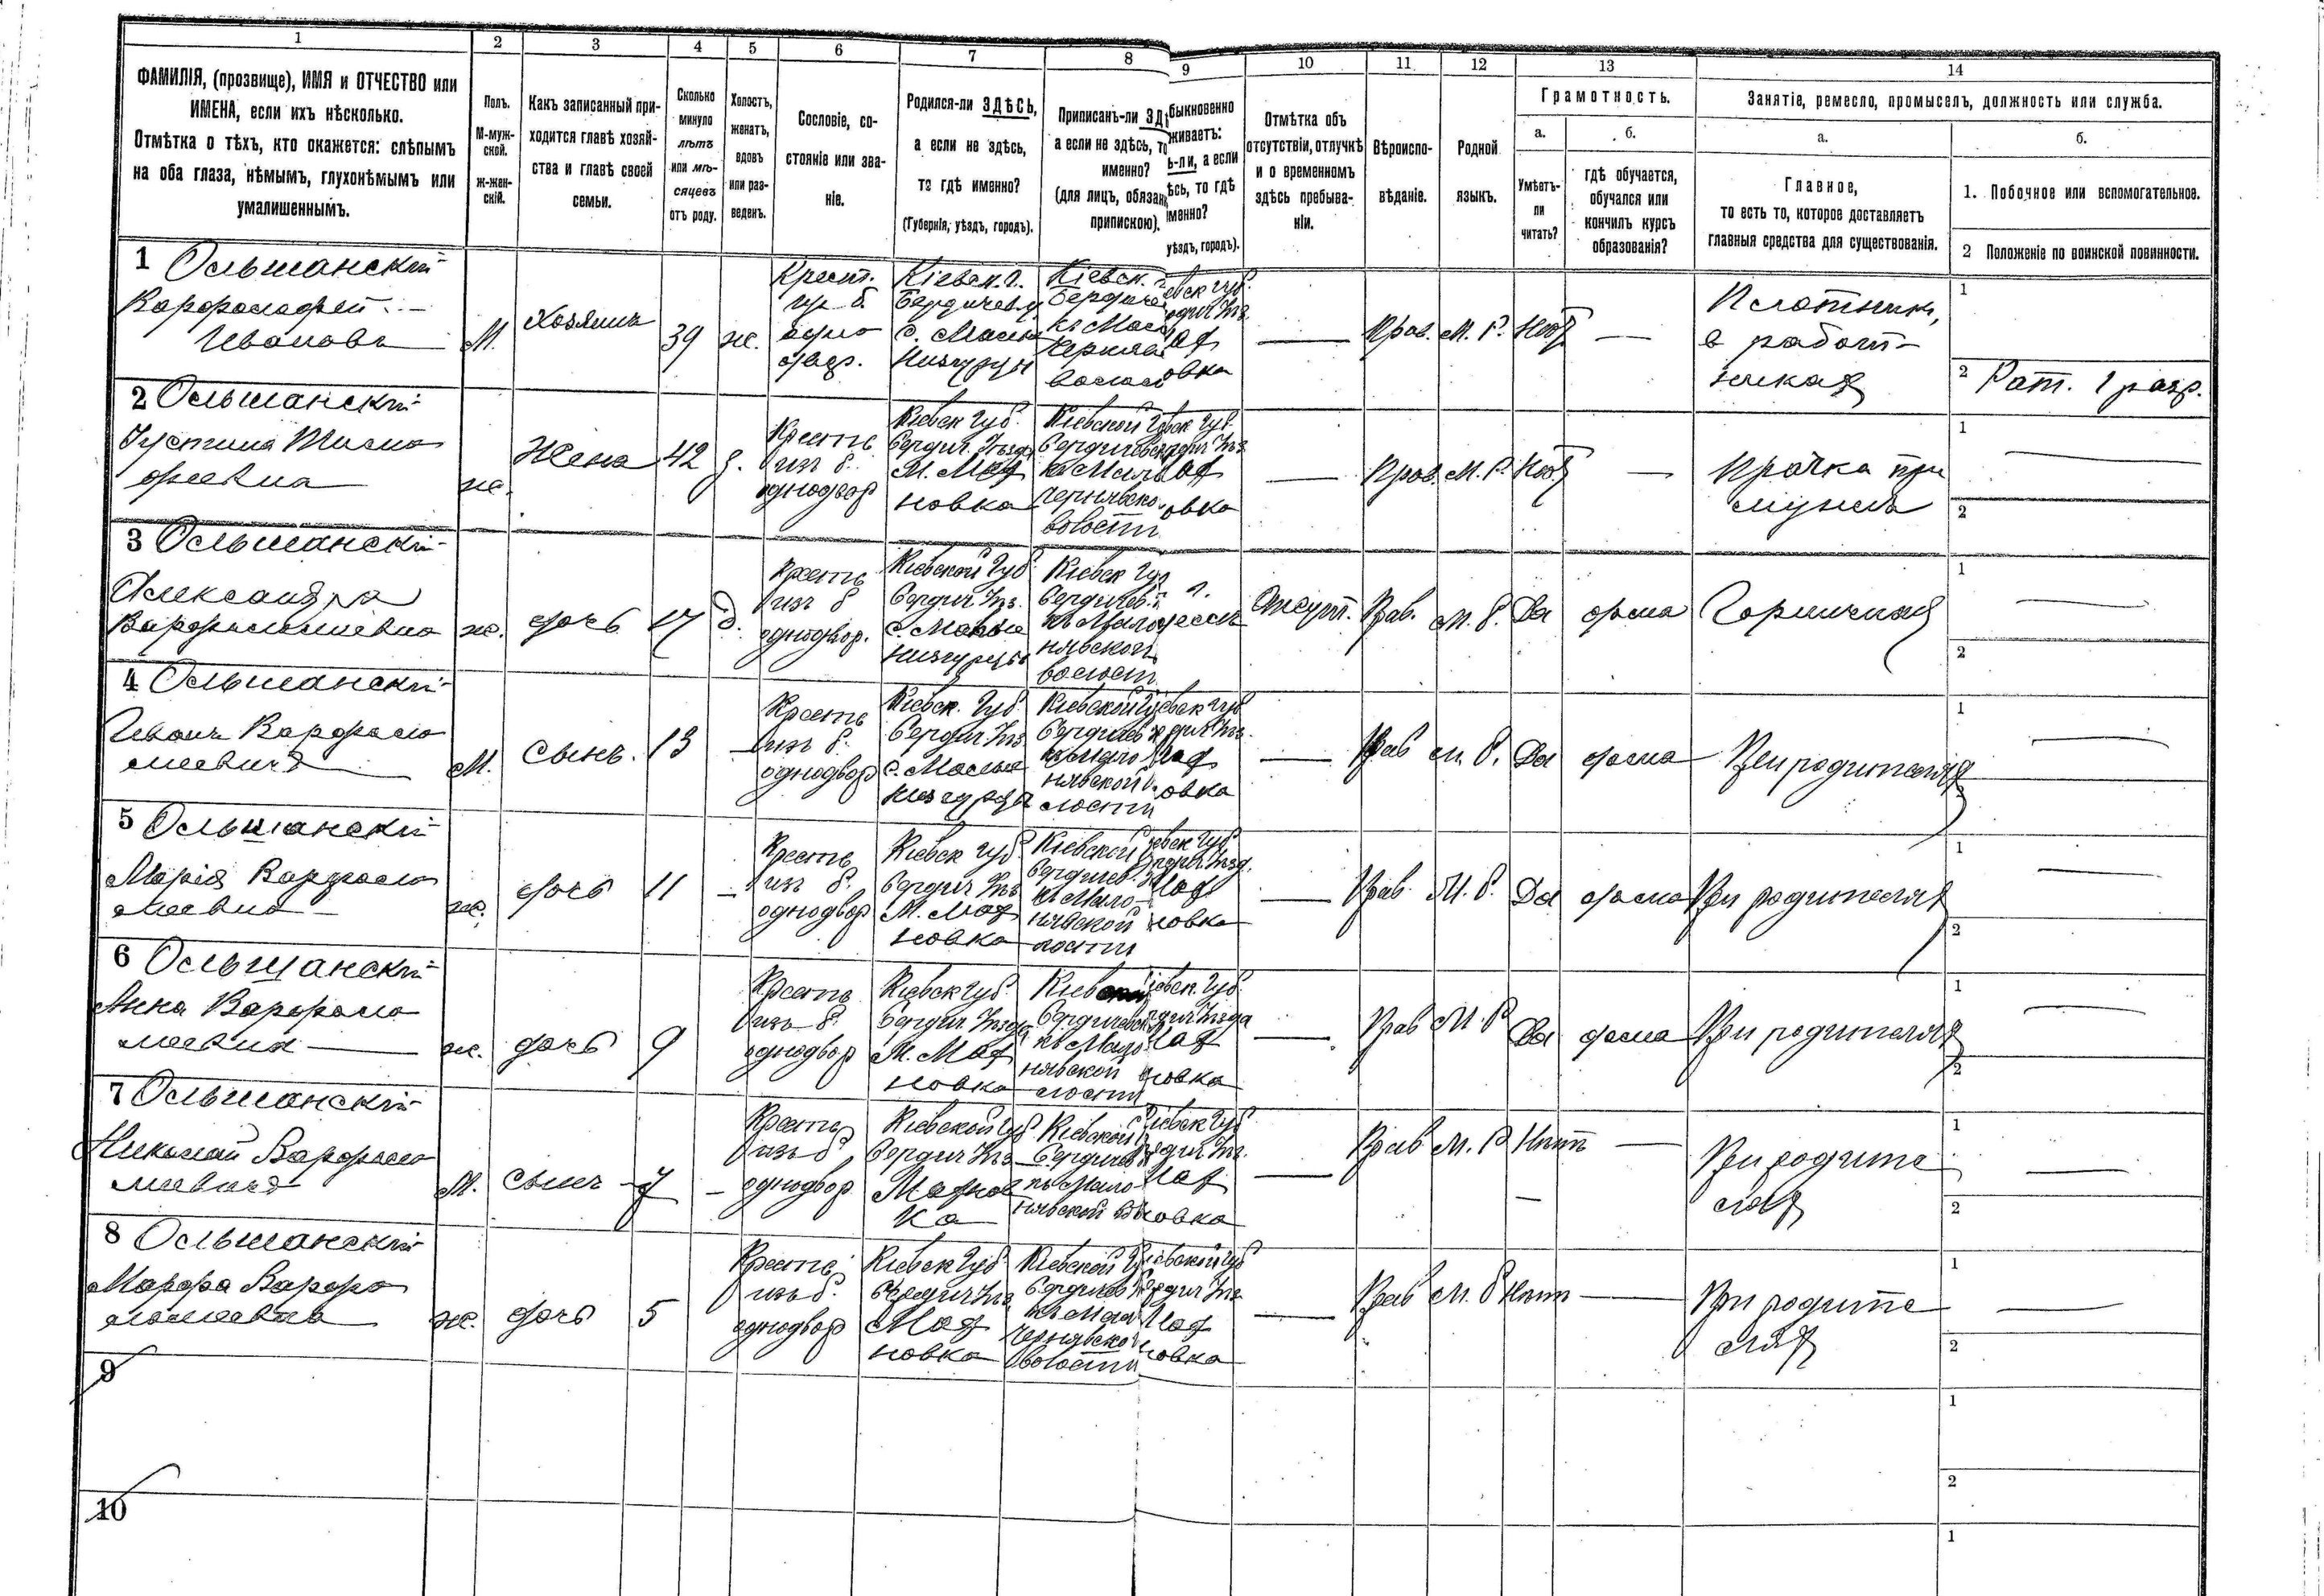 1
2
3
4
5
6
7
8
9
10
11
12
13
14
ФАМИЛІЯ, (прозвище), ИМЯ и ОТЧЕСТВО или
ИМЕНА, если ихъ нѣсколько.
Отмѣтка о тѣхъ, кто окажется: слѣпымъ
на оба глаза, нѣмымъ, глухонѣмымъ или
умалишеннымъ.
Полъ.
М-муж-
ской.
ж-жен-
скій.
Какъ записанный при-
ходится главѣ хозяй-
ства и главѣ своей
семьи.
Сколько
минуло
лѣтъ
или мѣ-
сяцевъ
отъ роду.
Холостъ,
женатъ,
вдовъ
или раз-
веденъ.
Сословіе, со-
стояніе или зва-
ніе.
Родился-ли ЗДѢСЬ,
а если не здѣсь,
то гдѣ именно?
(Губернія, уѣздъ, городъ).
Приписанъ-ли ЗД
а если не здѣсь, то
именно?
(для лицъ, обязан
припискою).
быкновенно
живаетъ:
ь-ли, а если
ѣсь, то гдѣ
менно?
уѣздъ, городъ).
Отмѣтка объ
отсутствіи, отлучкѣ
и о временномъ
здѣсь пребыва-
ніи.
Вѣроиспо-
вѣданіе.
Родной
языкъ.
Грамотность.
а.
Умѣетъ-
ли
читать?
б.
гдѣ обучается,
обучался или
кончилъ курсъ
образованія?
Занятіе, ремесло, промыселъ, должность или служба.
а.
Главное,
то есть то, которое доставляетъ
главныя средства для существованія.
б.
1. Побочное или вспомогательное.
2 Положеніе по воинской повинности.
1 Ольшанскій
Варфоломей
Ивановъ
М.
Хозяинъ
39
ж.
Крест.
из б.
одно
двор.
Кіевск. г.
Бердичев. у
с. Малые
Низгурцы
Кіевск.
Бердиче
къ Мало
Черняв
волост
евск губ.
рдич уѣз.
Мах
овка
—
Прав.
М. Р.
Нѣт
—
Плотник,
в работ-
никах
1
2 Рат. 1 разр.
2 Ольшанскій
Густина Тимо
феевна
ж.
Жена
42
з.
Кресть
изъ б.
однодвор
Кіевск губ.
Бердич. Уѣзд
М. Мах
новка
Кіевской
Бердичевск
къ Мало
Чернявско
волости
евск губ.
рдич уѣз
Мах
овка
—
Прав.
М. Р.
Нѣт
—
Прачка при
мужѣ
1
2
3 Ольшанскій
Александра
Варфоломеевна
ж.
дочь
17
д.
Кресть
изъ б
однодвор.
Кіевской Губ
Бердич Уѣз.
с. Малые
Низгурцы
Кіевск Гу
Бердичев.
къ Мало
нявской
волост
г.
десск
Отсут.
Прав.
М. Р.
Да
дома
Горничная
1
2
4 Ольшанскій
Иванъ Варфоло
меевичъ
М.
сынъ.
13
—
Кресть
изъ б.
однодвор
Кіевск. Губ
Бердич Уѣз
с. Малые
Низгурцы
Кіевской
Бердичев
къ Мало
нявской
лости
евск губ
рдич Уѣз.
Мах
овка
—
Прав
М. Р.
Да
дома
При родителях
1
2
5 Ольшанскій
Марія Варфоло
меевна
ж.
дочь
11
—
Кресть
изъ б.
однодвор
Кіевск губ.
Бердич Уѣз
М. Мах
новка
Кіевской
Бердичев.
къ Мало
нявской
лости
евск губ
рдич Уѣзд.
Мах
новка
—
Прав.
М. Р.
Да
дома
При родителях
1
2
6 Ольшанскій
Анна Варфоло
меевна
ж.
дочь
9
Кресть
изъ б.
однодвор
Кіевск губ.
Бердич Уѣзда
М. Мах
новка
Кіевской
Бердичевск
къ Мало
нявской
лости
евск. Губ
рдич Уѣзда
Мах
новка
—
Прав
М. Р
Да
дома
При родителях
1
2
7 Ольшанскій
Николай Варфоло
меевичъ
М.
сынъ
7
—
Кресть
изъ б
однодвор
Кіевской губ
Бердич Уѣз
Махнов
ка
Кіевской
Бердичев
къ Мало
нявской
іевск губ
рдич Уѣз.
Мах
новка
—
Прав
М. Р
Нѣт
—
При родите
лях
1
2
8 Ольшанскій
Марфа Варфо
ломеевна
ж.
дочь
5
Кресть
изъ б.
однодвор
Кіевск Губ
Бердич Уѣз
Мах
новка
Кіевской
Бердичев
къ Мало
Чернявской
волости
іевской губ
рдич Уѣз
Мах
новка
—
Прав
М. Р
Нѣт
—
При родите
лях
1
2
9
1
2
10
1